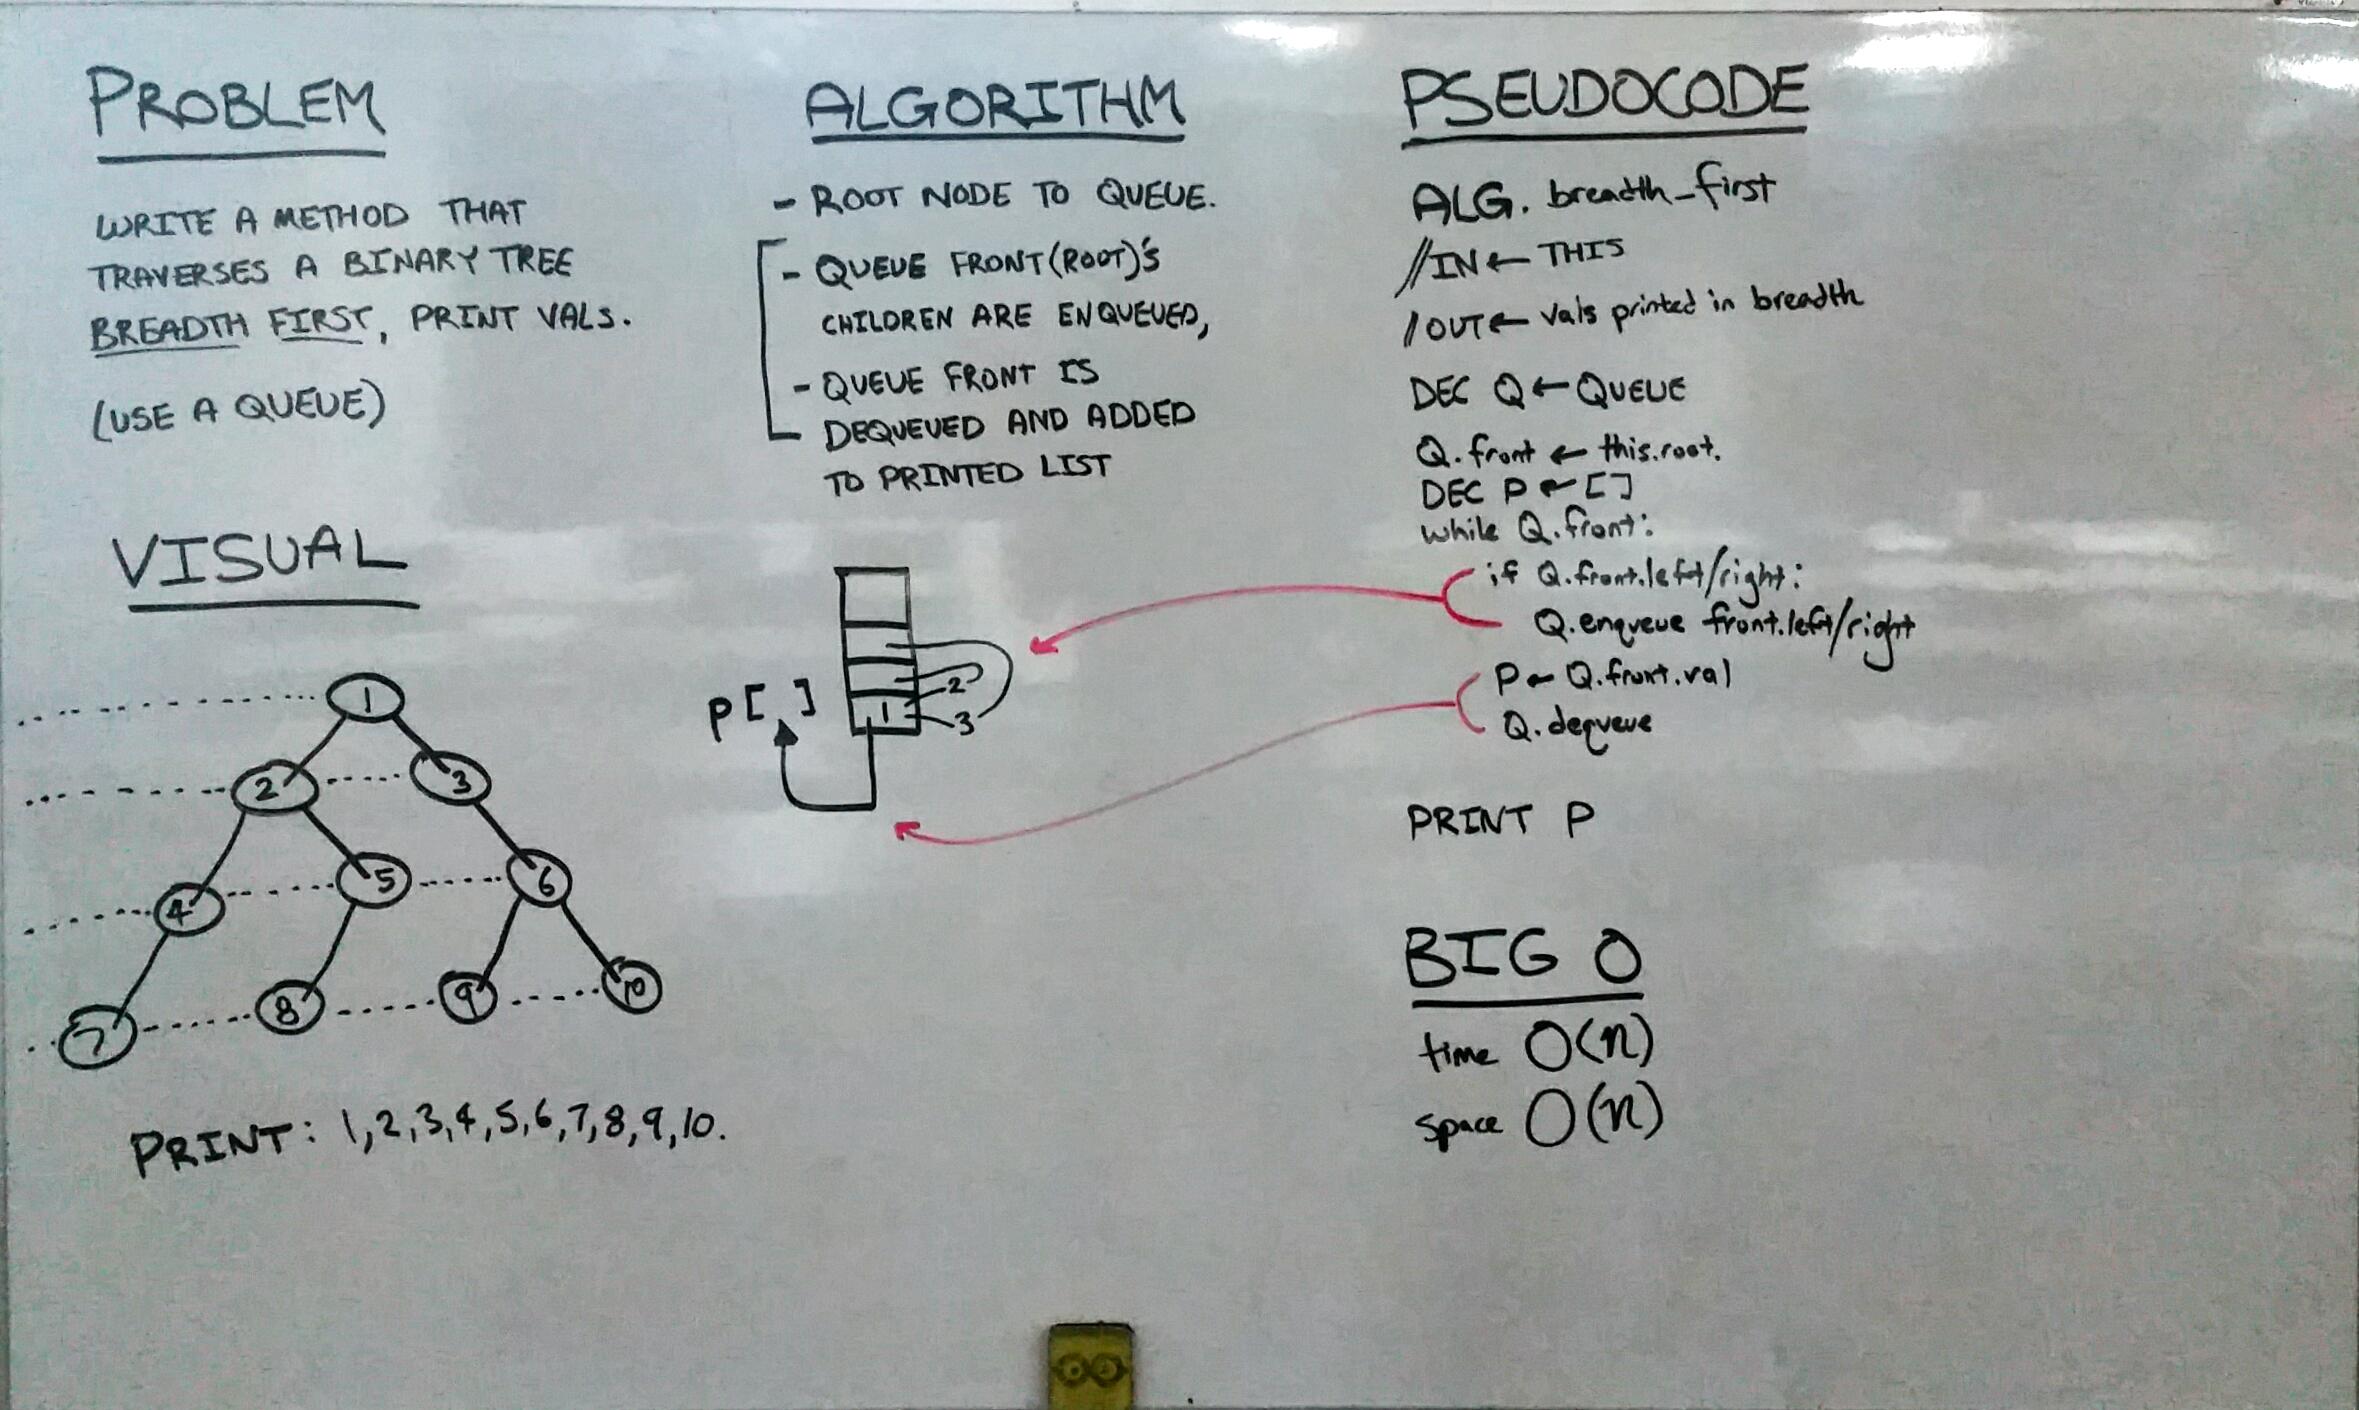 PROBLEM
WRITE A METHOD THAT
TRAVERSES A BINARY TREE
BREADTH FIRST, PRINT VALS.
(USE A QUEUE)
VISUAL
1
2 3
4 5 6
7 8 9 10
PRINT: 1,2,3,4,5,6,7,8,9,10.
ALGORITHM
- ROOT NODE TO QUEUE.
- QUEUE FRONT(ROOT)'S
CHILDREN ARE ENQUEUED,
- QUEUE FRONT IS
DEQUEUED AND ADDED
TO PRINTED LIST
P[ ]
1
2
3
PSEUDOCODE
ALG. breadth_first
//IN ← THIS
//OUT ← vals printed in breadth
DEC Q ← QUEUE
Q.front ← this.root.
DEC P ← []
while Q.front:
if Q.front.left/right:
Q.enqueue front.left/right
P ← Q.front.val
Q.dequeue
PRINT P
BIG O
time O(n)
space O(n)